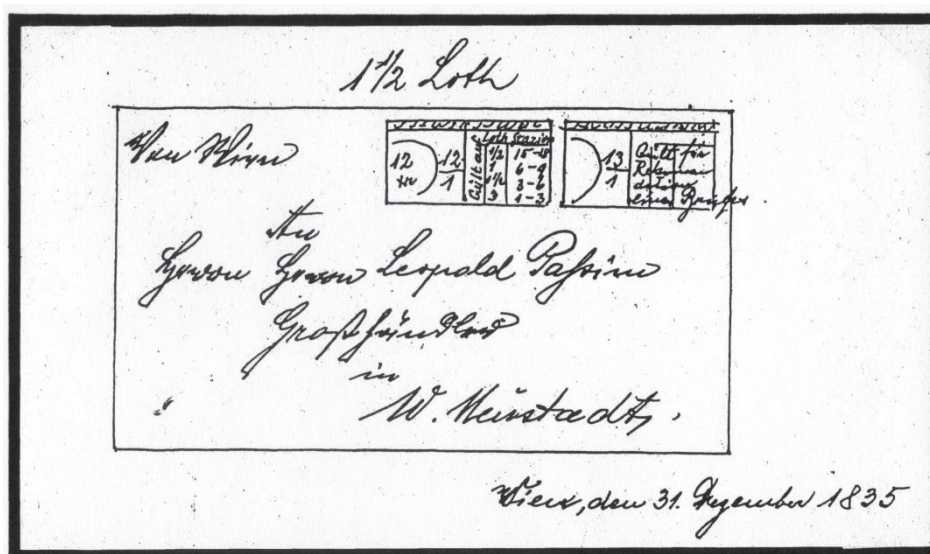 1 1/2 Loth
Von Wien
12 xr 12/1 Gilt auf Loth Stazion
1/2 15-18
1 6-9
1 1/2 3-6
3 1-3
13/1 Gilt für
Reko
eines Briefes
An
Herrn Herrn Leopold
Großhändler
in
W. Neustadt.
Wien, den 31. Dezember 1835